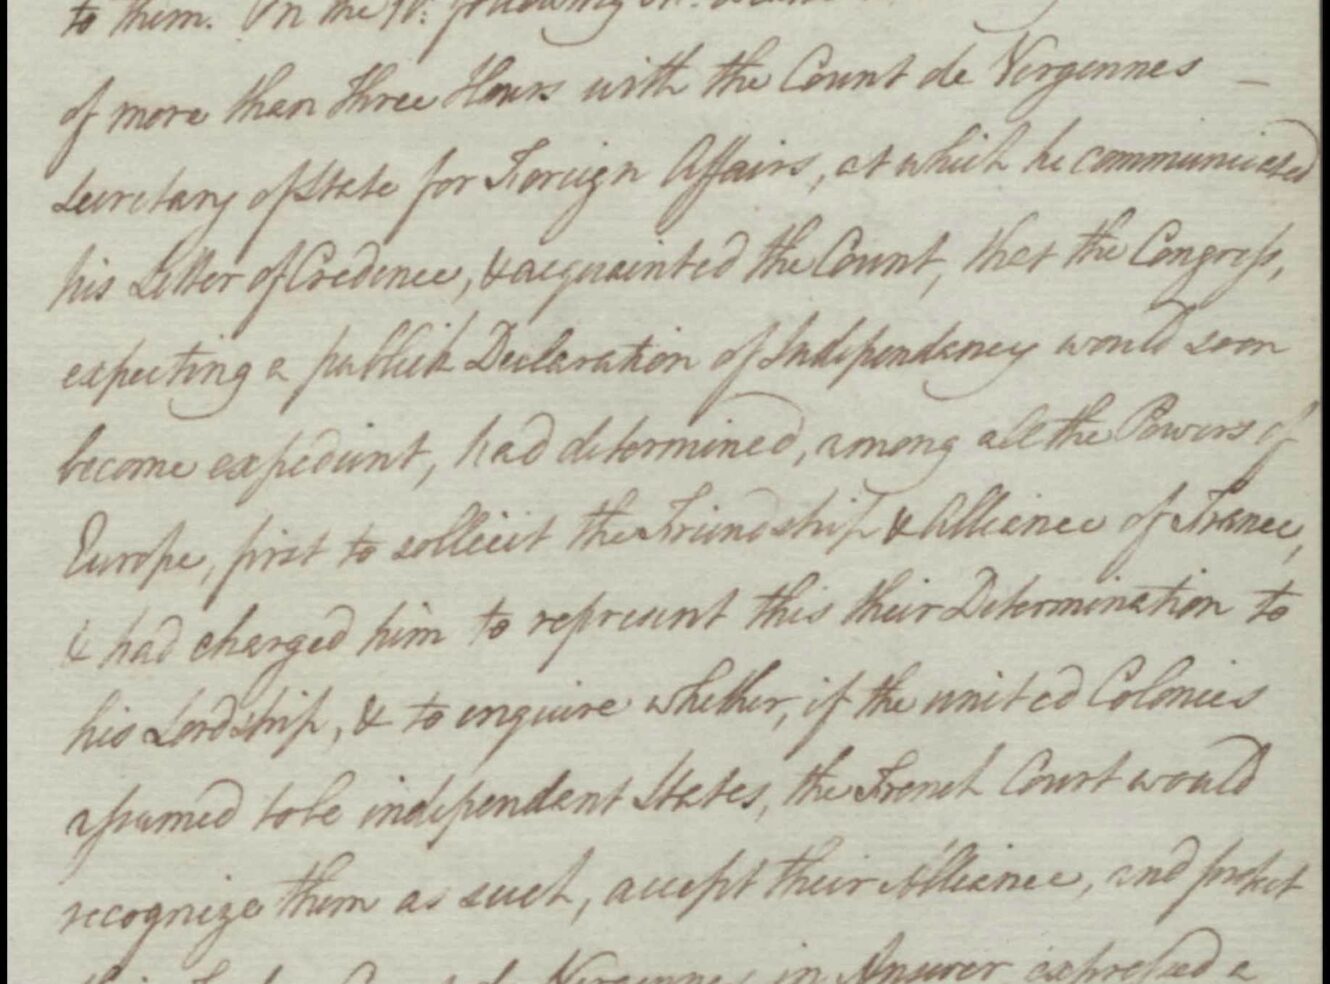 to them. On the
of more than three Hours with the Count de Vergennes —
Secretary of State for Foreign Affairs, at which he communicated
his Letter of Credence, & acquainted the Count, that the Congress,
expecting a publick Declaration of Independancy would soon
become expedient, had determined, among all the Powers of
Europe, first to sollicit the Friendship & Alliance of France,
& had charged him to represent this their Determination to
his Lordship, & to enquire whether, if the united Colonies
assumed to be independant States, the French Court would
recognize them as such, accept their Alliance, and protect
Vergennes in Answer expressed a